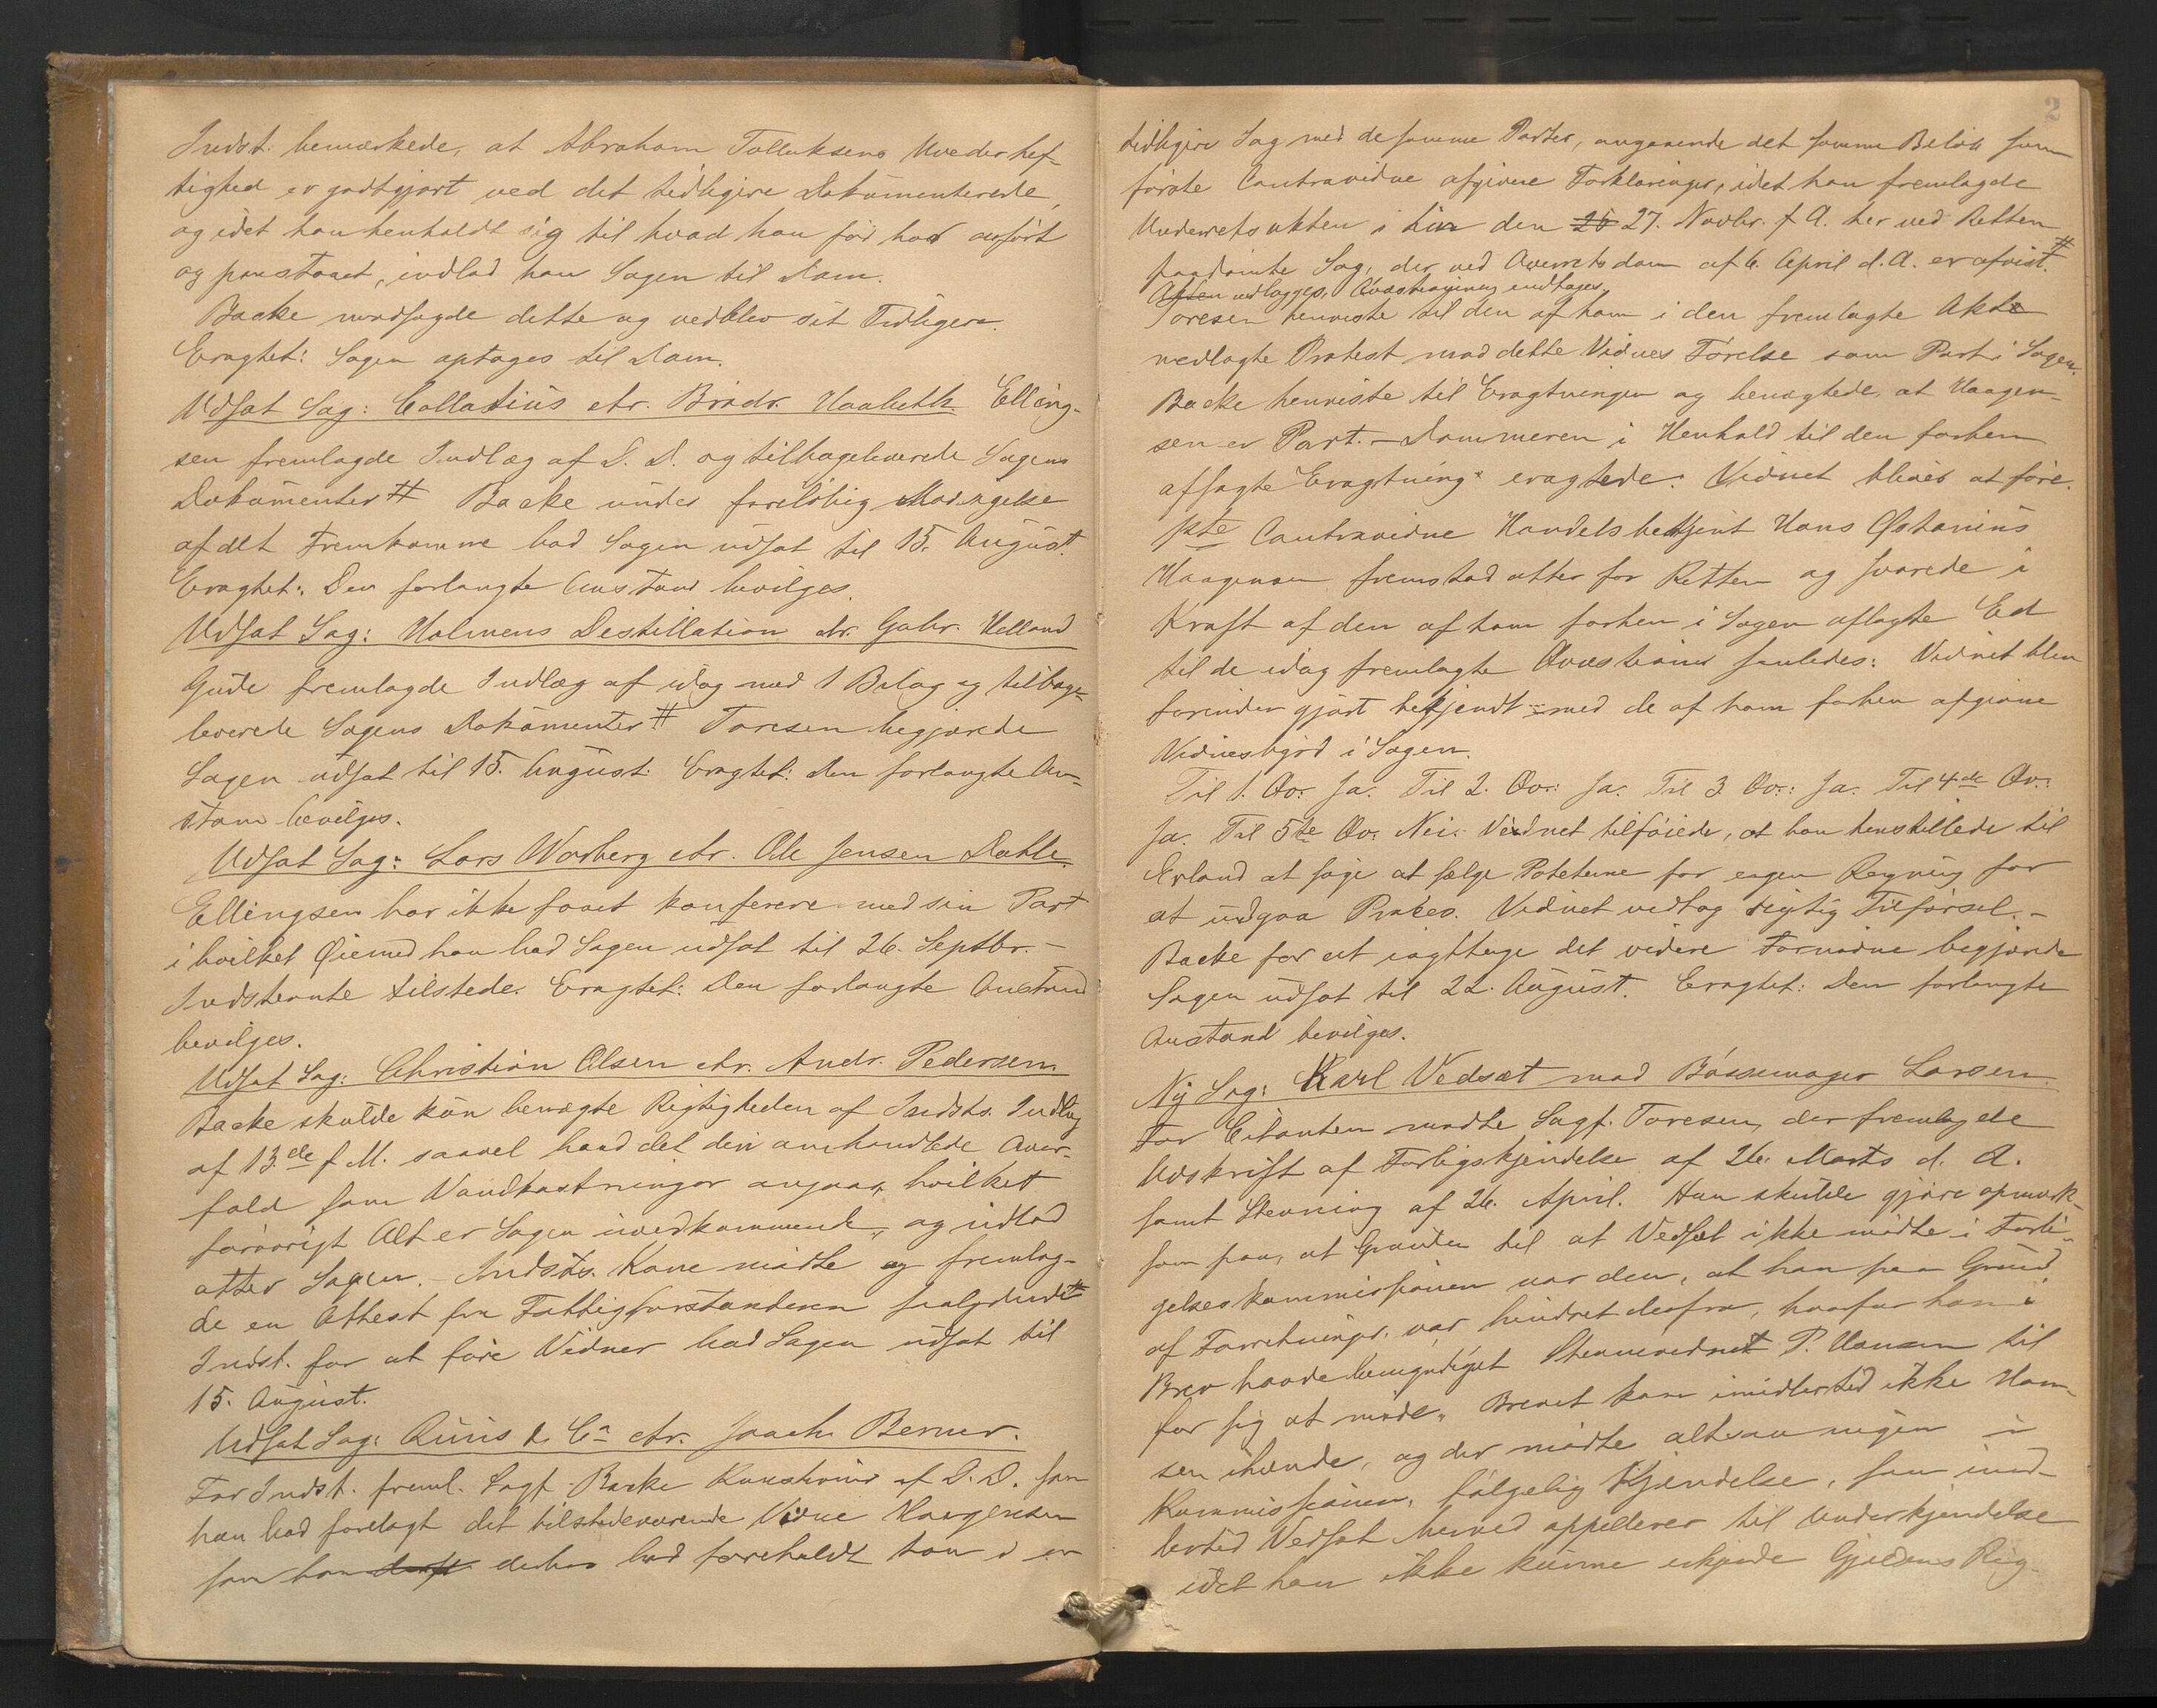 Indst. bemærkede, at Abraham Tollaksens Uvederhef-
tighed er godtgjort ved det tidligere Dokumenterede,
og idet han henholdt sig til hvad han før har anført
og paastaaet, indlod han Sagen til Dom.
Backe modsagde dette og vedblev sit Tidligere.
Eragtet: Sagen optages til Dom.
Udsat Sag: Collatius ctr. Brødr. Haabeth. Elling-
sen fremlagde Indlæg af D. D. og tilbageleverede Sagens
Dokumenter # Backe under foreløbig Modsigelse
af det Fremkomne bad Sagen udsat til 15. August.
Eragtet: Den forlangte Anstand bevilges.
Udsat Sag: Holmens Destillation ctr. Gabr. Helland
Gude fremlagde Indlæg af idag med 1 Bilag og tilbage-
leverede Sagens Dokumenter # Toresen begjærede
Sagen udsat til 15. August. Eragtet: Den forlangte An-
stand bevilges.
Udsat Sag: Lars Warberg ctr. Ole Jensen Dahle.
Ellingsen har ikke faaet konferere med sin Part
i hvilket Øiemed han bad Sagen udsat til 26. Septbr. -
Indstevnte tilstede. Eragtet: Den forlangte Anstand
bevilges.
Udsat Sag: Christian Olsen ctr. Andr. Pedersen.
Backe skulde kun benægte Rigtigheden af Indsts. Indlæg
af 13.de f. M. saavel hvad det deri omhandlede Over-
fald som Vandkastninger angaar, hvilket
forøvrigt Alt er Sagen uvedkommende, og indlod
atter Sagen. - Indsts. Kone mødte og fremlag-
de en Attest fra Fattigforstanderen #
Indst. for at føre Vidner bad Sagen udsat til
15. August.
Udsat Sag: & Co ctr. Joach. Berner.
For Indst. freml. Sagf. Backe af D. D. som
han bad forelagt det tilstedeværende Vidne Haagensen
som han derhos bad foreholdt han i en
2
tidligere Sag med de samme Parter, angaaende det samme Beløb som
første Contravidne afgivne Forklaringer, idet han fremlagde
Underretsakten i hin den 27. Novbr. f. A. her ved Retten
paadømte Sag, der ved Overretsdom af 6. April d. A. er afvist. #
Akten vedlægges, Qvæstionerne indtages.
Toresen henviste til den af ham i den fremlagte Akt
nedlagte Protest mod dette Vidnes Førelse som Part i Sagen.
Backe henviste til Eragtningen og benægtede, at Haagen-
sen er Part. - Dommeren i Henhold til den forhen
afsagte Eragtning eragtede: Vidnet bliver at føre.
1ste Contravidne Handelsbetjent Hans Ostanius
Haagensen fremstod atter for Retten og svarede i
Kraft af den af ham forhen i Sagen aflagte Ed
til de idag fremlagte Qvæstioner saaledes: Vidnet blev
forinden gjort bekjendt med de af ham forhen afgivne
Vidnesbyrd i Sagen.
Til 1. Qv: Ja. Til 2. Qv.: Ja. Til 3 Qv.: Ja. Til 4de Qv.:
Ja. Til 5te Qv. Nei. Vidnet tilføiede, at han henstillede til
Erland at søge at sælge Poteterne for egen Regning for
at undgaa Proces. Vidnet vedtog rigtig Tilførsel. -
Backe for at iagttage det videre Fornødne begjærede
Sagen udsat til 22. August. Eragtet: Den forlangte
Anstand bevilges.
Ny Sag: Karl Vedsæt mod Bøssemager Larsen.
For Citanten mødte Sagf. Toresen, der fremlagde
Udskrift af Forligskjendelse af 26. Marts d. A.
samt Stevning af 26. April. Han skulde gjøre opmærk-
som paa, at Grunden til at Vedsæt ikke mødte i Forli-
gelseskommissionen var den, at han paa Grund
af Forretninger var hindret derfra, hvorfor han i
Brev havde bemyndiget Stevnevidnet P. Hansen til
for sig at møde. Brevet kom imidlertid ikke Han-
sen ihænde, og der mødte altsaa ingen i
Kommissionen, følgelig Kjendelse, som imid-
lertid Vedsæt herved appellerer til Underkjendelse
idet han ikke kunne erkjende Gjældens Rig-